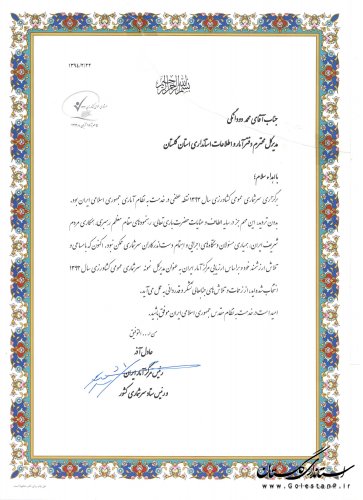 ۱۳۹۴/۳/۲۳
بسم الله الرحمن الرحیم
جناب آقای محمد دودانگی
مدیرکل محترم دفتر آمار و اطلاعات استانداری استان گلستان
با اهداء سلام؛
برگزاری سرشماری عمومی کشاورزی سال ۱۳۹۳ نقطه عطفی در خدمت به نظام آماری جمهوری اسلامی ایران بود.
بدون تردید، این مهم جز در سایه الطاف و عنایات حضرت باری تعالی، رهنمودهای مقام معظم رهبری، همکاری مردم
شریف ایران، همیاری مسئولان دستگاه‌های اجرایی و اهتمام دست اندرکاران سرشماری ممکن نبود. اکنون که با مساعی و
تلاش ارزشمند خود و بر اساس ارزیابی مرکز آمار ایران به عنوان مدیرکل نمونه سرشماری عمومی کشاورزی سال ۱۳۹۳
انتخاب شده‌اید، از زحمات و تلاش‌های جنابعالی تشکر و قدردانی به عمل می‌آید.
امید است در خدمت به نظام مقدس جمهوری اسلامی ایران موفق باشید.
من ا... التوفیق
عادل آذر
رئیس مرکز آمار ایران
و رئیس ستاد سرشماری کشور
استانداری گلستان
www.Golestanp.ir